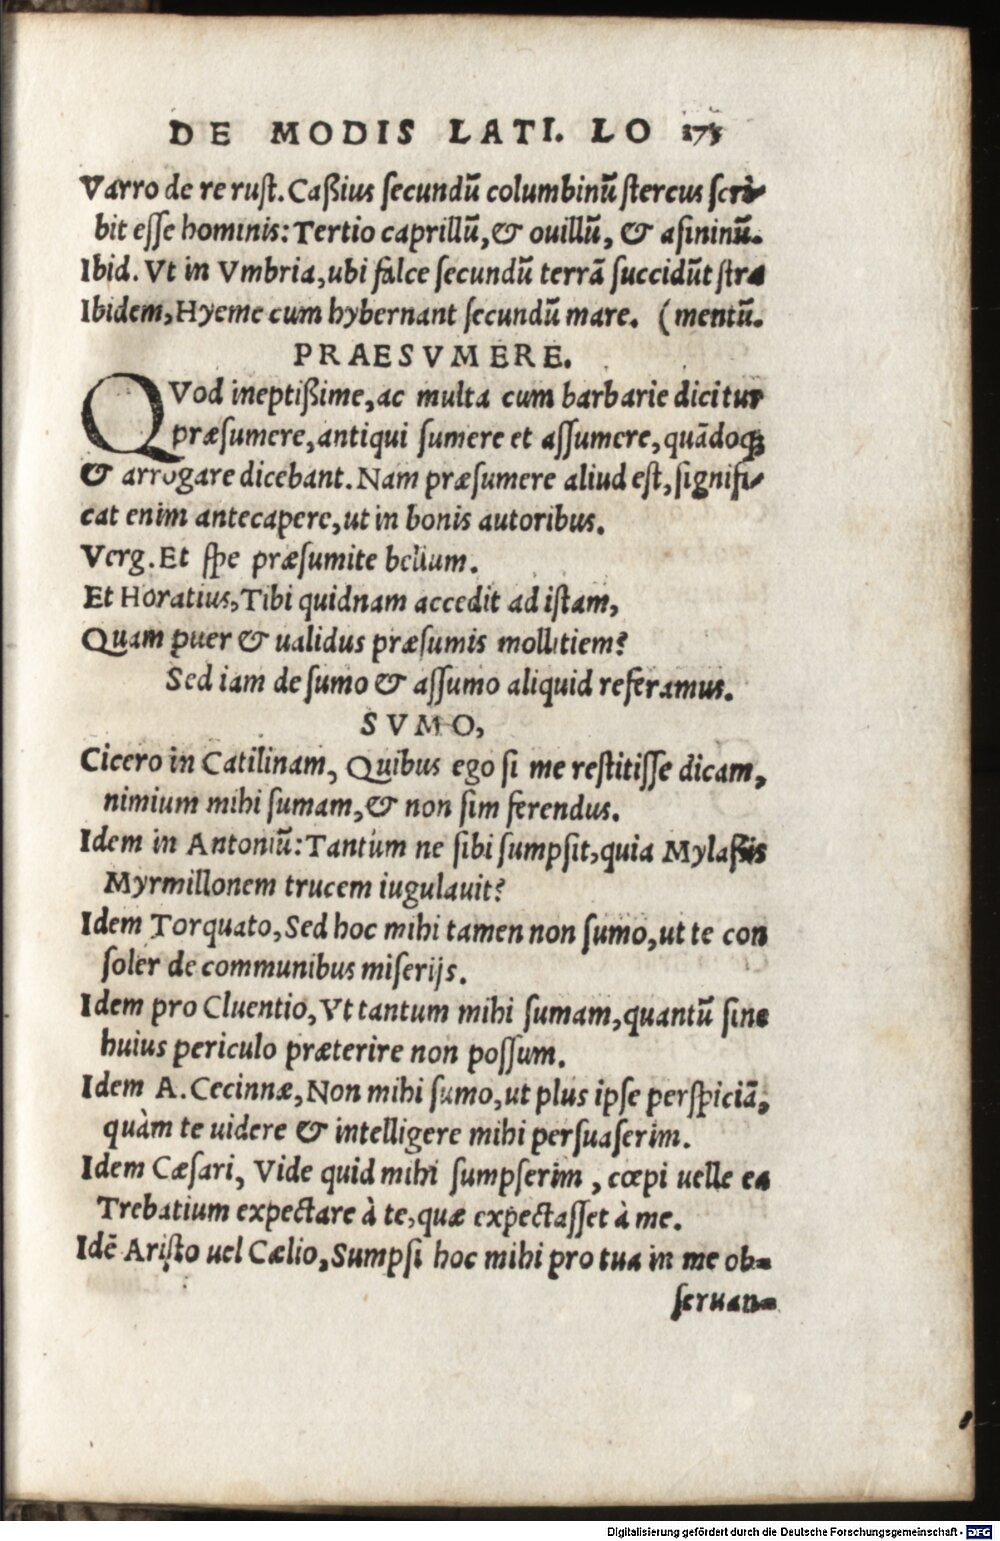 DE MODIS LATI. LO 175
Varro de re rust. Caßius secundũ columbinũ stercus scri-
bit esse hominis: Tertio caprillũ, & ouillũ, & asininũ.
Ibid. Vt in Vmbria, ubi falce secundũ terrã succidũt stra
Ibidem, Hyeme cum hybernant secundũ mare. (mentũ.
PRAESVMERE.
QVod ineptißime, ac multa cum barbarie dicitur
præsumere, antiqui sumere et assumere, quãdoqꝫ
& arrogare dicebant. Nam præsumere aliud est, signifi-
cat enim antecapere, ut in bonis autoribus.
Verg. Et spe præsumite bellum.
Et Horatius, Tibi quidnam accedit ad istam,
Quam puer & ualidus præsumis mollitiem?
Sed iam de sumo & assumo aliquid referamus.
SVMO,
Cicero in Catilinam, Quibus ego si me restitisse dicam,
nimium mihi sumam, & non sim ferendus.
Idem in Antoniũ: Tantum ne sibi sumpsit, quia Mylaßis
Myrmillonem trucem iugulauit?
Idem Torquato, Sed hoc mihi tamen non sumo, ut te con
soler de communibus miserijs.
Idem pro Cluentio, Vt tantum mihi sumam, quantũ sine
huius periculo præterire non possum.
Idem A. Cecinnæ, Non mihi sumo, ut plus ipse perspiciã,
quàm te uidere & intelligere mihi persuaserim.
Idem Cæsari, Vide quid mihi sumpserim, cœpi uelle ea
Trebatium expectare à te, quæ expectasset à me.
Idẽ Aristo uel Cælio, Sumpsi hoc mihi pro tua in me ob-
seruan-
Digitalisierung gefördert durch die Deutsche Forschungsgemeinschaft - DFG